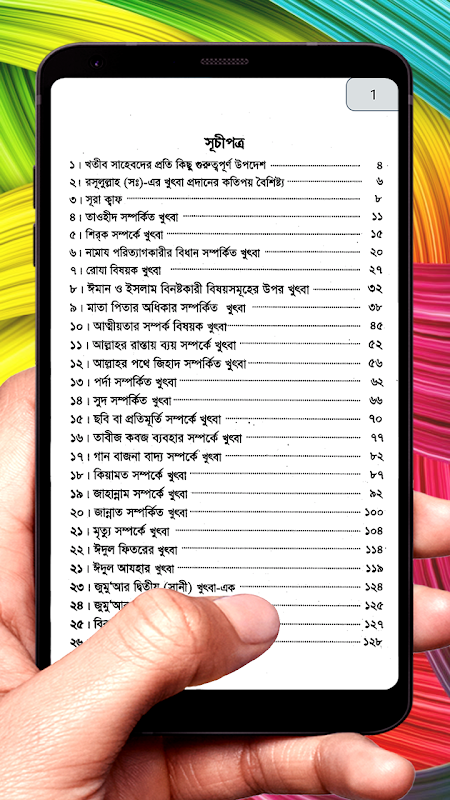 1
সূচীপত্র
১। খতীব সাহেবদের প্রতি কিছু গুরুত্বপূর্ণ উপদেশ ৪
২। রসূলুল্লাহ (সঃ)-এর খুৎবা প্রদানের কতিপয় বৈশিষ্ট্য ৬
৩। সূরা ক্বাফ ৮
৪। তাওহীদ সম্পর্কিত খুৎবা ১১
৫। শির্ক সম্পর্কে খুৎবা ১৫
৬। নামায পরিত্যাগকারীর বিধান সম্পর্কিত খুৎবা ২০
৭। রোযা বিষয়ক খুৎবা ২৭
৮। ঈমান ও ইসলাম বিনষ্টকারী বিষয়সমূহের উপর খুৎবা ৩২
৯। মাতা পিতার অধিকার সম্পর্কিত খুৎবা ৩৮
১০। আত্মীয়তার সম্পর্ক বিষয়ক খুৎবা ৪৫
১১। আল্লাহর রাস্তায় ব্যয় সম্পর্কে খুৎবা ৫২
১২। আল্লাহর পথে জিহাদ সম্পর্কিত খুৎবা ৫৬
১৩। পর্দা সম্পর্কিত খুৎবা ৬২
১৪। সুদ সম্পর্কিত খুৎবা ৬৬
১৫। ছবি বা প্রতিমূর্তি সম্পর্কে খুৎবা ৭০
১৬। তাবীজ কবজ ব্যবহার সম্পর্কে খুৎবা ৭৭
১৭। গান বাজনা বাদ্য সম্পর্কে খুৎবা ৮২
১৮। কিয়ামত সম্পর্কে খুৎবা ৮৭
১৯। জাহান্নাম সম্পর্কে খুৎবা ৯২
২০। জান্নাত সম্পর্কিত খুৎবা ১০০
২১। মৃত্যু সম্পর্কে খুৎবা ১০৪
২২। ঈদুল ফিতরের খুৎবা ১১৪
২১। ঈদুল আযহার খুৎবা ১১৯
২৩। জুমু'আর দ্বিতীয় (সানী) খুৎবা-এক ১২৪
২৪। জুমু'আর ১২৫
২৫। ১২৭
২৬ ১২৮